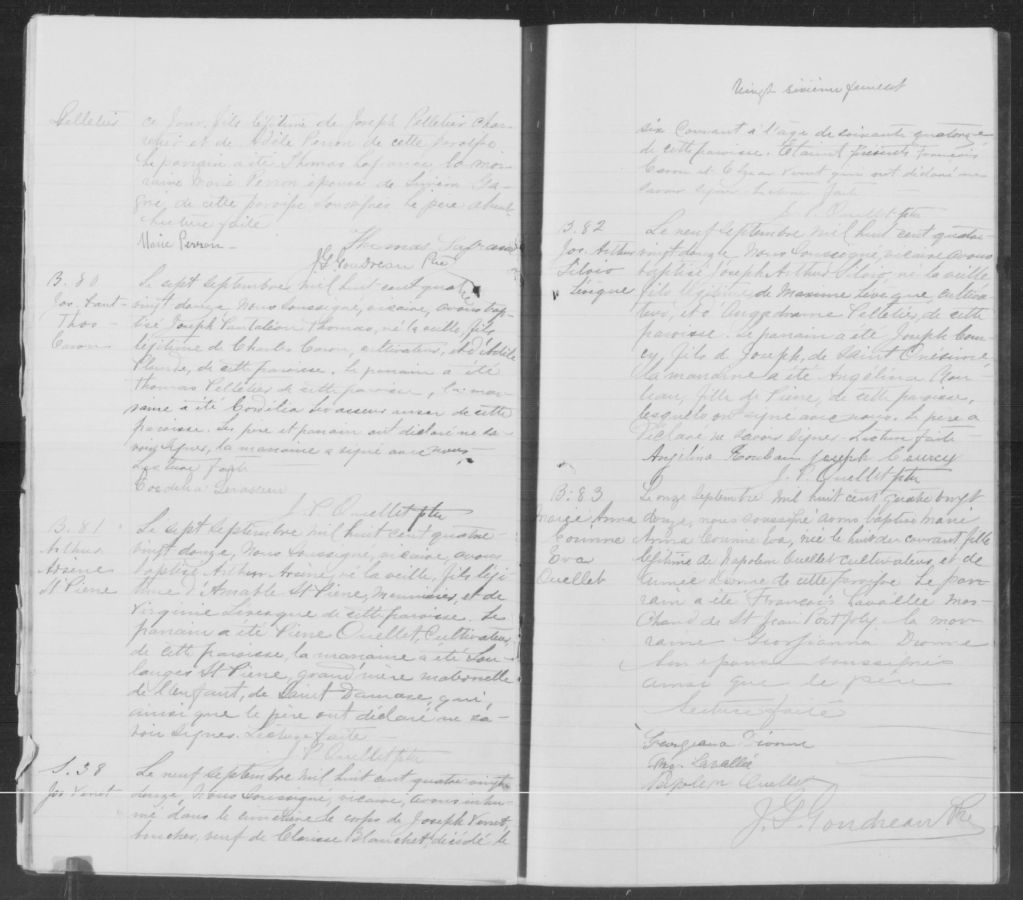 Pelletier
ce jour, fils légitime de Joseph Pelletier Char-
retier et de Adèle Perron de cette paroisse
Le parrain a été Thomas Lafrance la mar-
raine Marie Perron épouse de
de cette paroisse soussignés le père absent
Lecture faite.
Marie Perron
Thomas Lafrance
J. G. Goudreau Ptre
B. 80
Jos. Pant.
Thos
Caron
Le sept septembre mil huit cent quatre
vingt douze nous soussigné, vicaire, avons bap-
tisé Joseph Pantaléon Thomas, né la veille, fils
légitime de Charles Caron, cultivateur, et d'Adèle
Plourde, de cette paroisse. Le parrain a été
Thomas Pelletier de cette paroisse, la mar-
raine a été Cordélia Levasseur aussi de cette
paroisse. Les père et parrain ont déclaré ne sa-
voir signer, la marraine a signé avec nous
Lecture faite
Cordelia Levasseur
J. P. Ouellet ptre
B. 81
Arthur
Arsène
St Pierre
Le sept septembre mil huit cent quatre-
vingt douze, nous soussigné, vicaire, avons
baptisé Arthur Arsène, né la veille, fils légi-
time d'Amable St Pierre, meunier, et de
Virginie Levesque de cette paroisse. Le
parrain a été Pierre Ouellet cultivateur,
de cette paroisse, la marraine a été Sou-
langes St Pierre, grand'mère maternelle
de l'enfant, de Saint Damase, qui,
ainsi que le père ont déclaré ne sa-
voir signer. Lecture faite
J. P. Ouellet ptre
S. 38
Jos. Venet
Le neuf septembre mil huit cent quatre vingt
douze, nous soussigné, vicaire, avons inhu-
mé dans le cimetière le corps de Joseph Venet
boucher, veuf de Clarisse Blanchet, décédé le
Vingt sixième feuillet
six courant à l'âge de soixante quatorze
de cette paroisse. Étaient présents François
Caron et Venet qui ont déclaré ne
savoir signer Lecture faite
J. P. Ouellet ptre
B. 82
Jos. Arthur
Silvio
Lévèque
Le neuf septembre mil huit cent quatre
vingt douze nous soussigné, vicaire avons
baptisé Joseph Arthur Silvio, né la veille
fils légitime de Maxime Lévèque, cultiva-
teur, et d' Pelletier, de cette
paroisse. Le parrain a été Joseph Cour-
cy, fils de Joseph, de Saint Onésime
la marraine a été Angélina Rou-
leau, fille de Pierre, de cette paroisse,
lesquels ont signé avec nous. Le père a
déclaré ne savoir signer. Lecture faite
Angélina Joseph Courcy
J. P. Ouellet ptre
B. 83
Marie Anna
Corinne
Eva
Ouellet
Le onze septembre mil huit cent quatre vingt
douze, nous soussigné avons baptisé Marie
Anna Corinne Eva, née le huit du courant fille
légitime de Napoléon Ouellet Cultivateur, et de
Aimée Dionne de cette paroisse Le par-
rain a été François Lavallée mar-
chand de St Jean Port Joly la mar-
raine Georgianna Dionne
son épouse soussignés
ainsi que le père
Lecture faite
Georgeana Dionne
Lavallée
Napoléon Ouellet
J. G. Goudreau Ptre